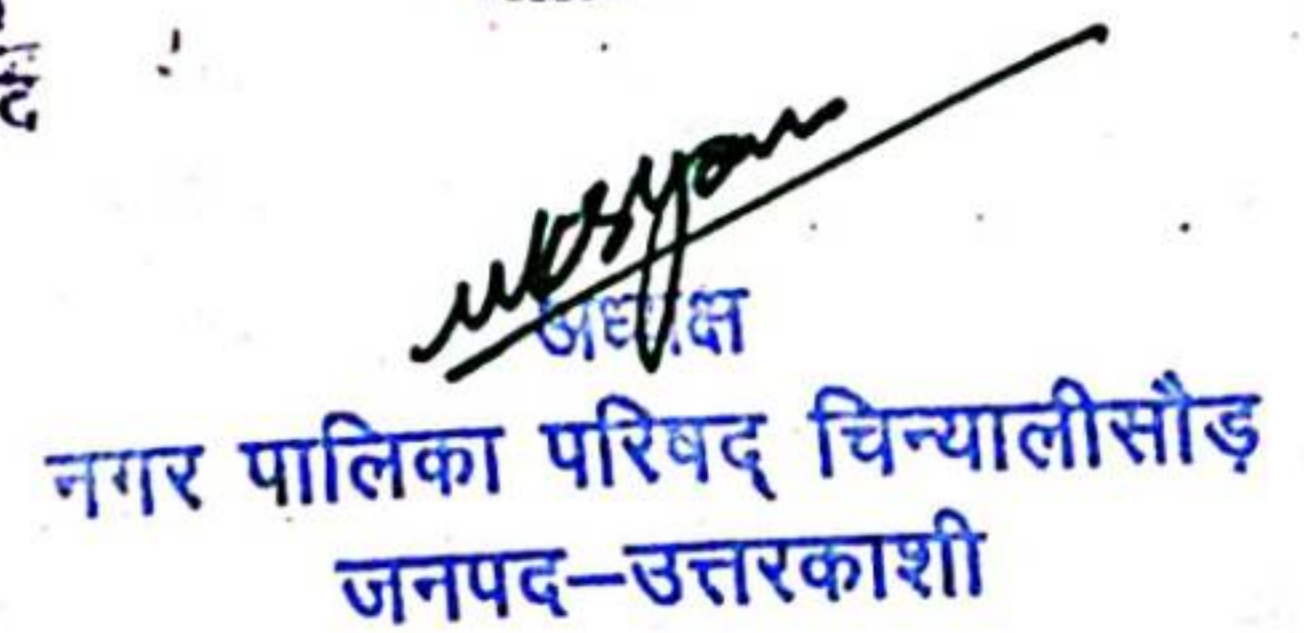 अध्यक्ष
नगर पालिका परिषद् चिन्यालीसौड़
जनपद–उत्तरकाशी